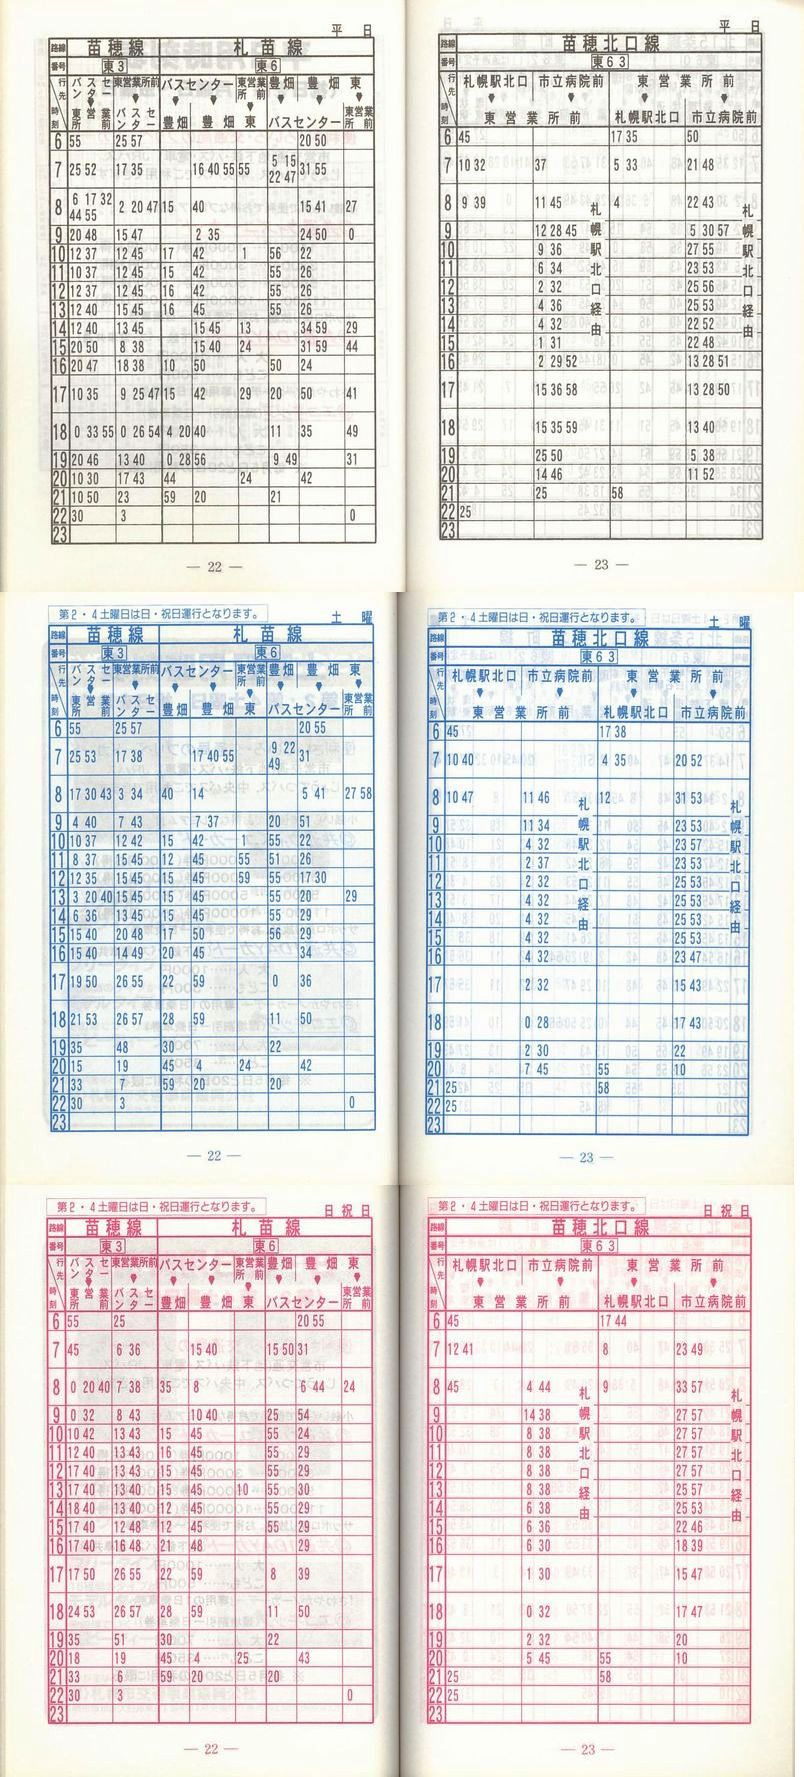 平 日
路線 苗穂線 札苗線
番号 東3 東6
行先 バスセンター 東営業所前 バスセンター 東営業所前 豊畑 豊畑 東
時刻 東営業所前 バスセンター 豊畑 豊畑 東 バスセンター 東営業所前
6 55 25 57 20 50
7 25 52 17 35 16 40 55 55 5 15 22 47 31 55
8 6 17 32 44 55 2 20 47 15 40 15 41 27
9 20 48 15 47 2 35 24 50 0
10 12 37 12 45 17 42 1 56 22
11 10 37 12 45 15 42 55 26
12 12 37 12 45 16 42 55 26
13 12 40 12 45 16 45 55 26
14 12 40 13 45 15 45 13 34 59 29
15 20 50 8 38 15 40 24 31 59 44
16 20 47 18 38 10 50 50 24
17 10 35 9 25 47 15 42 29 20 50 41
18 0 33 55 0 26 54 4 20 40 11 35 49
19 20 46 13 40 0 28 56 9 49 31
20 10 30 17 43 44 24 42
21 10 50 23 59 20 21
22 30 3 0
23
— 22 —
平 日
路線 苗穂北口線
番号 東63
行先 札幌駅北口 市立病院前 東営業所前
時刻 東営業所前 札幌駅北口 市立病院前
6 45 17 35 50
7 10 32 37 5 33 21 48
8 9 39 11 45 4 22 43
9 12 28 45 5 30 57
10 9 36 27 55
11 6 34 23 53
12 2 32 25 56
13 4 36 25 53
14 4 32 22 52
15 1 31 22 48
16 2 29 52 13 28 51
17 15 36 58 13 28 50
18 15 35 59 13 40
19 25 50 5 38
20 14 46 11 52
21 25 58
22 25
23
札幌駅北口経由
札幌駅北口経由
— 23 —
第2・4土曜日は日・祝日運行となります。
土 曜
路線 苗穂線 札苗線
番号 東3 東6
行先 バスセンター 東営業所前 バスセンター 東営業所前 豊畑 豊畑 東
時刻 東営業所前 バスセンター 豊畑 豊畑 東 バスセンター 東営業所前
6 55 25 57 20 55
7 25 53 17 38 17 40 55 9 22 49 31
8 17 30 43 3 34 40 14 5 41 27 58
9 4 40 7 43 7 37 20 51
10 10 37 12 42 15 42 1 55 22
11 8 37 15 45 12 45 55 51 26
12 12 35 15 45 15 45 59 55 17 30
13 3 20 40 15 45 15 45 55 20 29
14 6 36 13 45 15 45 55 29
15 15 40 20 48 17 50 56 29
16 15 40 14 49 20 45 34
17 19 50 26 55 22 59 0 36
18 21 53 26 57 28 59 11 50
19 35 48 30 22
20 15 19 45 4 24 42
21 33 7 59 20 20
22 30 3 0
23
— 22 —
第2・4土曜日は日・祝日運行となります。
土 曜
路線 苗穂北口線
番号 東63
行先 札幌駅北口 市立病院前 東営業所前
時刻 東営業所前 札幌駅北口 市立病院前
6 45 17 38
7 10 40 4 35 20 52
8 10 47 11 46 12 31 53
9 11 34 23 53
10 4 32 23 57
11 2 37 23 53
12 2 32 25 53
13 4 32 25 53
14 4 32 25 53
15 4 32 25 53
16 4 32 23 47
17 2 32 15 43
18 0 28 17 43
19 2 30 22
20 7 45 55 10
21 25 58
22 25
23
札幌駅北口経由
札幌駅北口経由
— 23 —
第2・4土曜日は日・祝日運行となります。
日 祝 日
路線 苗穂線 札苗線
番号 東3 東6
行先 バスセンター 東営業所前 バスセンター 東営業所前 豊畑 豊畑 東
時刻 東営業所前 バスセンター 豊畑 豊畑 東 バスセンター 東営業所前
6 55 25 20 55
7 45 6 36 15 40 15 50 31
8 0 20 40 7 38 35 8 6 44 24
9 0 32 8 43 10 40 25 54
10 10 42 13 43 15 45 55 24
11 12 40 13 43 16 45 55 29
12 17 40 13 43 15 45 55 29
13 17 40 13 40 15 45 10 55 30
14 18 40 13 40 12 45 55 29
15 17 40 12 48 12 45 55 29
16 17 40 16 48 21 48 29
17 17 50 26 55 22 59 8 39
18 24 53 26 57 28 59 11 50
19 35 51 30 22
20 18 19 45 4 25 43
21 33 6 59 20 20
22 30 3 0
23
— 22 —
第2・4土曜日は日・祝日運行となります。
日 祝 日
路線 苗穂北口線
番号 東63
行先 札幌駅北口 市立病院前 東営業所前
時刻 東営業所前 札幌駅北口 市立病院前
6 45 17 44
7 12 41 8 23 49
8 45 4 44 9 33 57
9 14 38 27 57
10 8 38 27 57
11 8 38 27 57
12 8 38 27 57
13 8 38 27 57
14 6 38 25 53
15 6 36 22 46
16 6 30 18 39
17 1 30 15 47
18 0 32 17 47
19 2 32 20
20 5 45 55 10
21 25 58
22 25
23
札幌駅北口経由
札幌駅北口経由
— 23 —